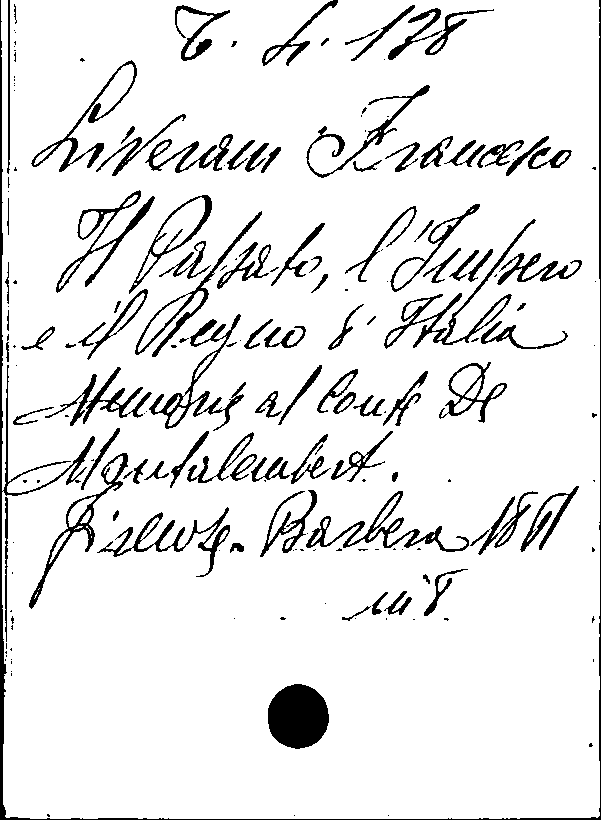 6. Li. 178
Liverani Francesco
Il Passato, l'Impero
e il Regno d'Italia
Memorie al Conte De
Montalembert.
Firenze. Barbera 1861
in 8